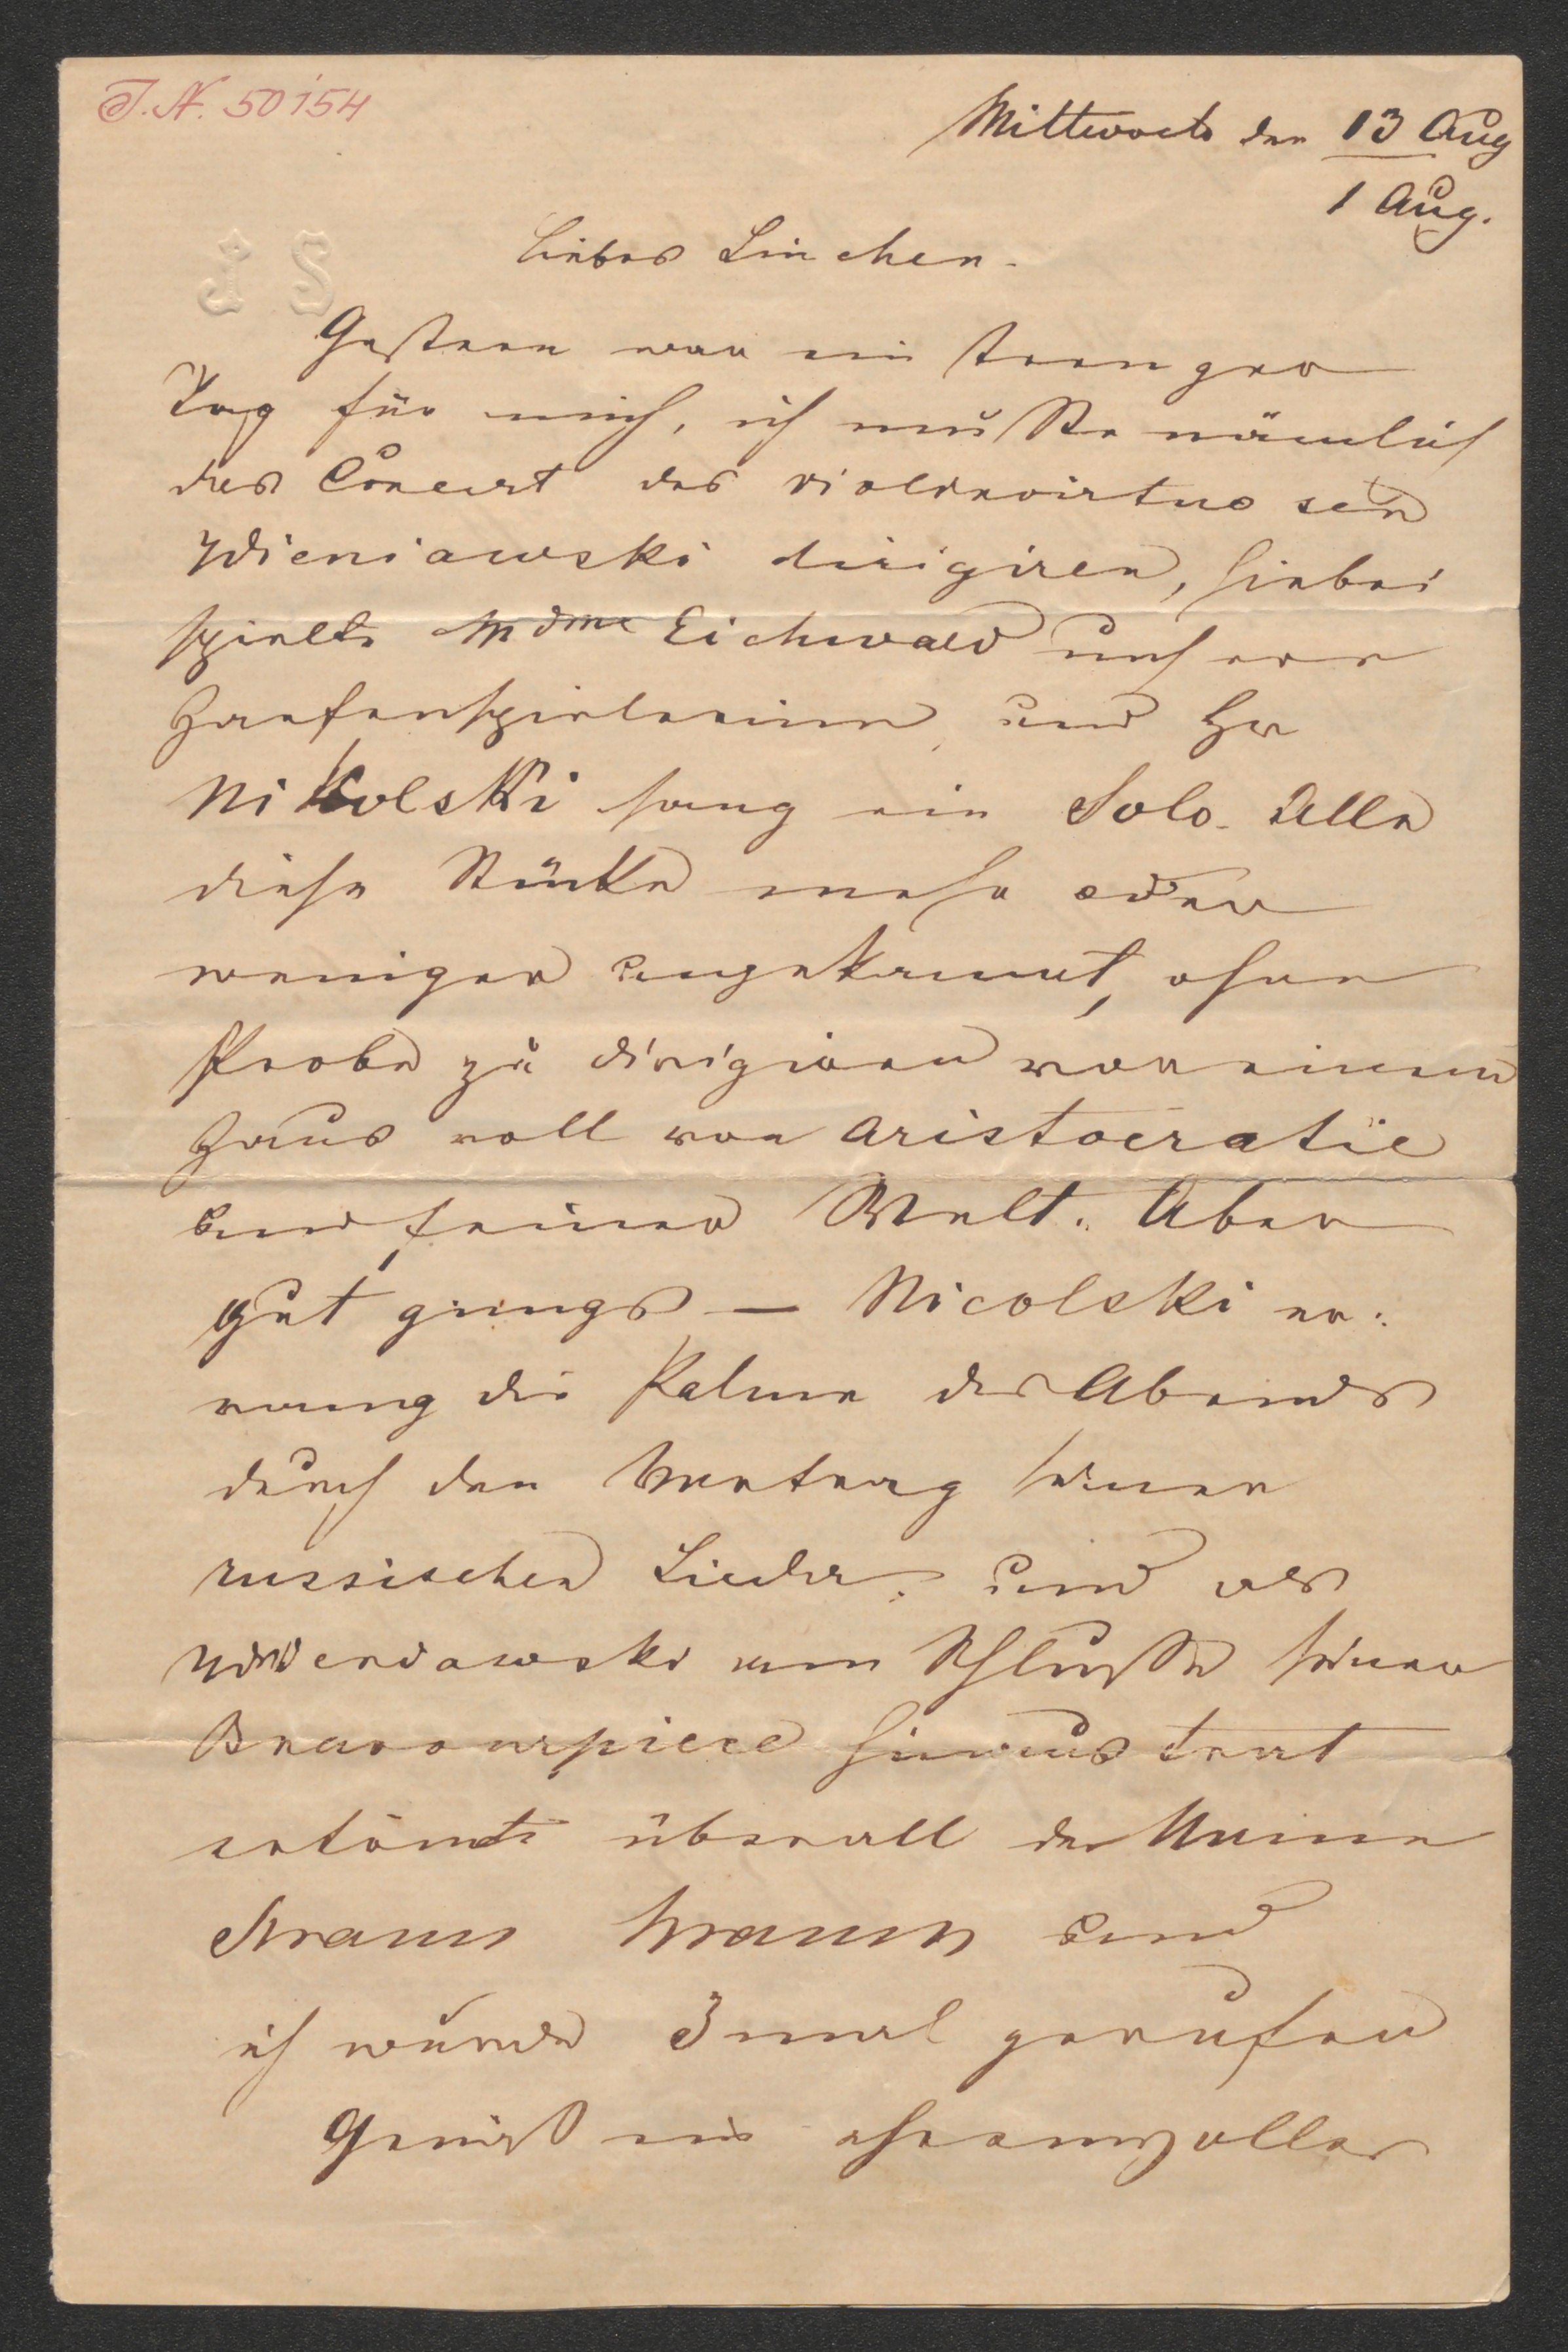 J. N. 50154
Mittwoch den 13 Aug
1 Aug.
J S
Liebes Linchen.
Gestern war ein stranger
Tag für mich, ich mußte nämlich
das Concert des violinvirtuosen
Wieniawski dirigiren, hiebei
spielte Mdme Eichwald unsere
Harfenspielerinn, und Hr
Nikolski sang ein Solo. Alle
diese Stücke mehr oder
weniger ungekannt, ohne
Probe zu dirigiren vor einem
Haus voll von Aristocratie
und feiner Welt. Aber
gut giengs — Nicolski er:
rang die Palme des Abends
durch den Vortrag seiner
russischen Lieder, und als
Wieniawski am Schluße seiner
Bravourpiece hinaus trat
ertönte überall der Name
Strauss Strauss und
ich wurde 3 mal gerufen
Gewiß ein ehrenvoller